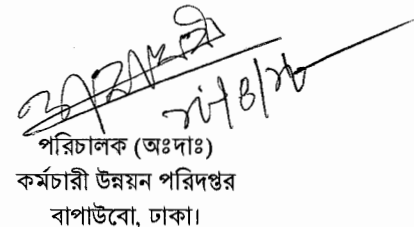 পরিচালক (অঃদাঃ)
কর্মচারী উন্নয়ন পরিদপ্তর
বাপাউবো, ঢাকা।